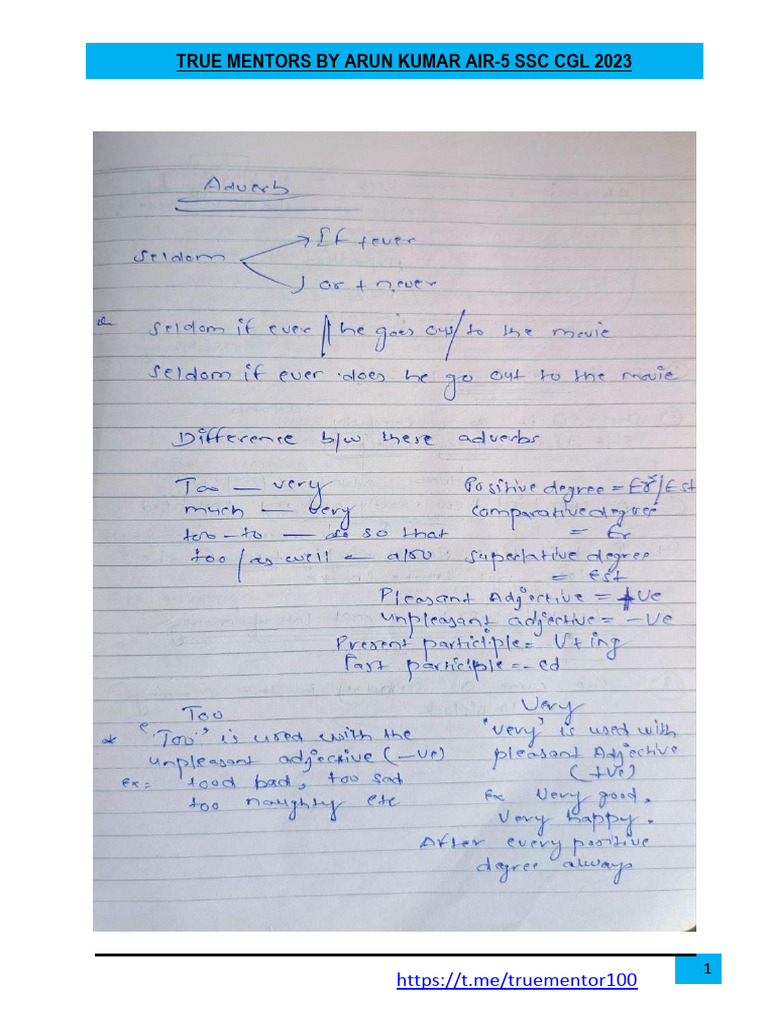 TRUE MENTORS BY ARUN KUMAR AIR-5 SSC CGL 2023
Adverb
Seldom
If + ever
or + never
Seldom if ever he goes out to the movie
Seldom if ever does he go out to the movie
Difference b/w these adverbs
Too — very
much — very
too-to — so that
too/as well = also
Positive degree = Er/Est
Comparative degree
= Er
superlative degree
= Est
Pleasant Adjective = +ve
unpleasant adjective = -ve
Present participle = V+ing
Past participle = -ed
Too
'Too' is used with the
unpleasant adjective (-ve)
Ex= tood bad, too sad
too naughty etc
Very
'very' is used with
pleasant Adjective
(+ve)
Ex Very good,
Very happy.
After every positive
degree always
https://t.me/truementor100
1